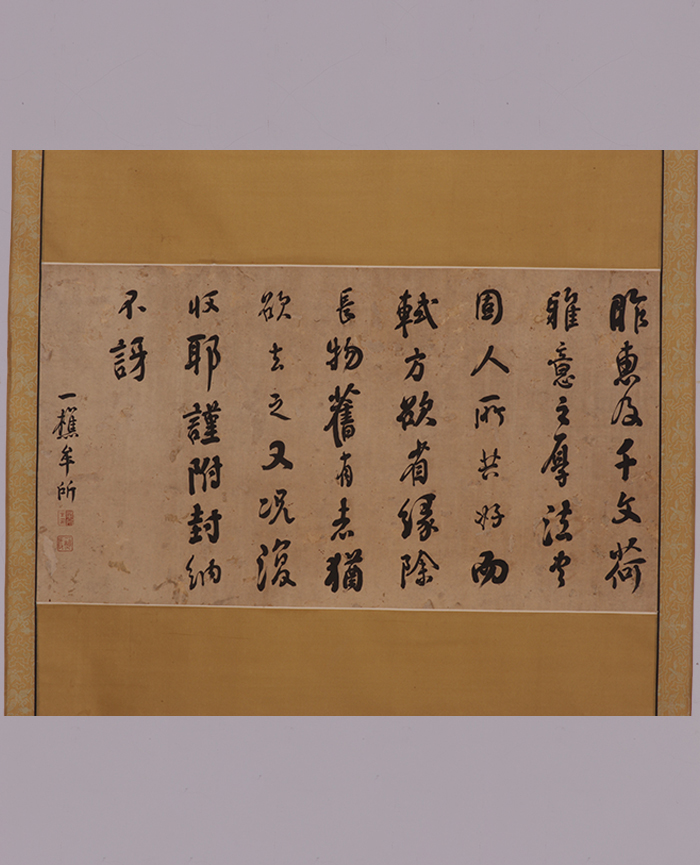 昨惠及千文荷
雅意之厚法書
固人所共好而
軾方欲省緣除
長物舊有者猶
欲去之又况復
收耶謹附封納
不訝
一樵牟